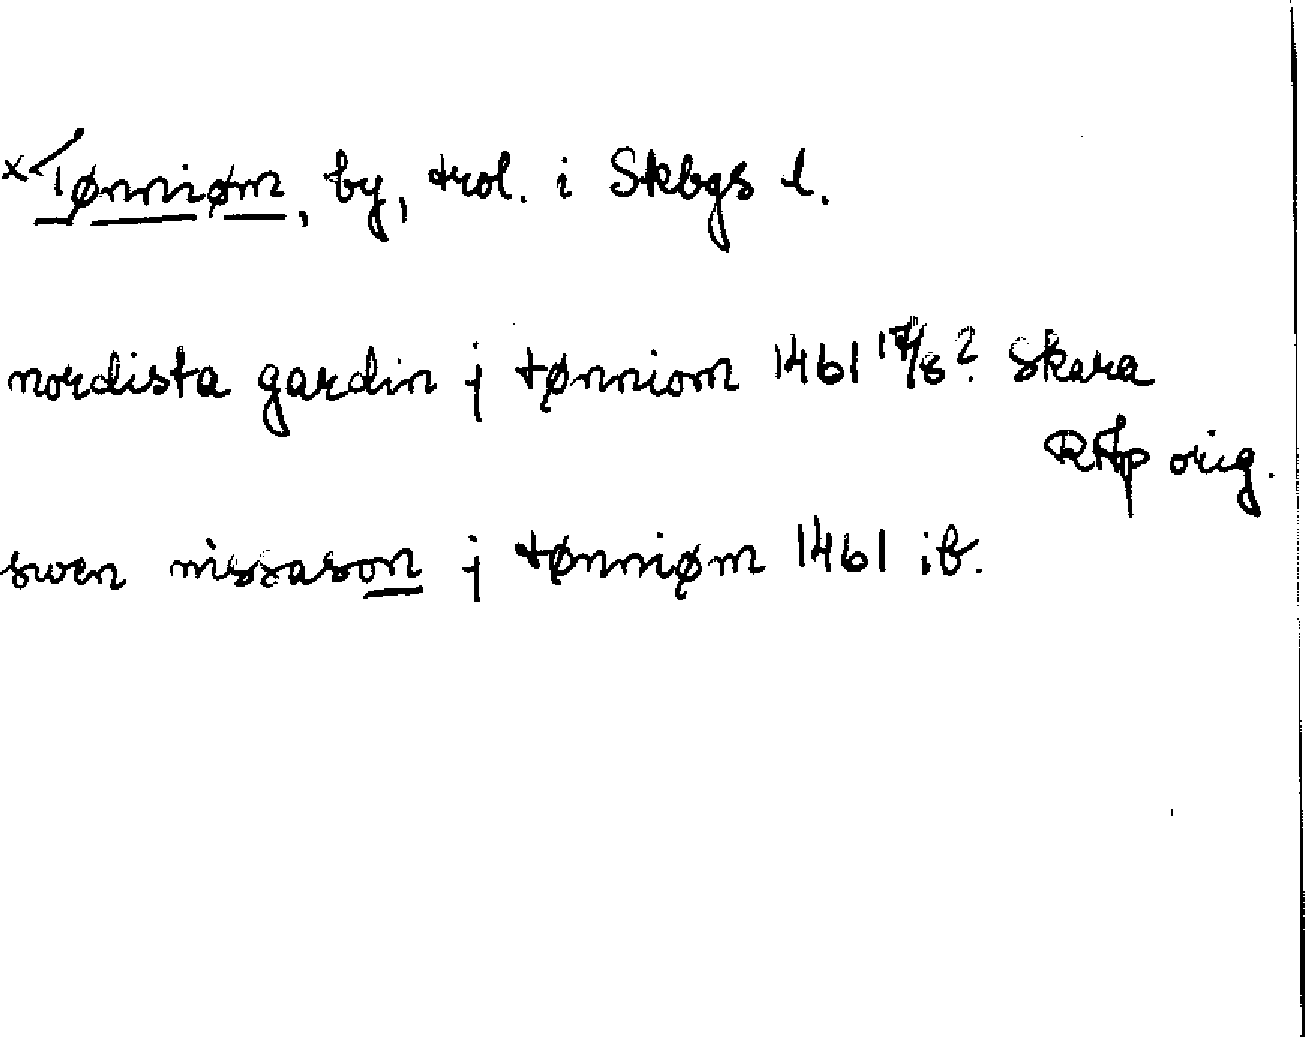 ×Tønniøm, by, trol. i Skbgs l.
nordista gardin j tønniom 1461 17/8? Skara
RAp orig.
swen nissason j tønniøm 1461 ib.